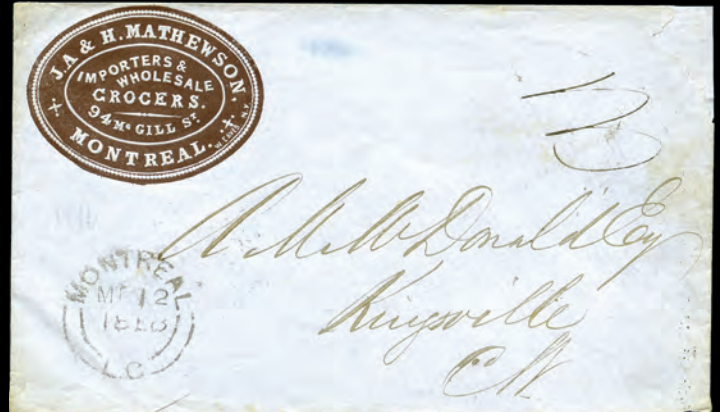 J.A & H. MATHEWSON.
IMPORTERS &
WHOLESALE
GROCERS.
94 Mc GILL ST.
MONTREAL.
3
A. M. McDonald Esq
Kingsville
C.W.
MONTREAL
12
L.C